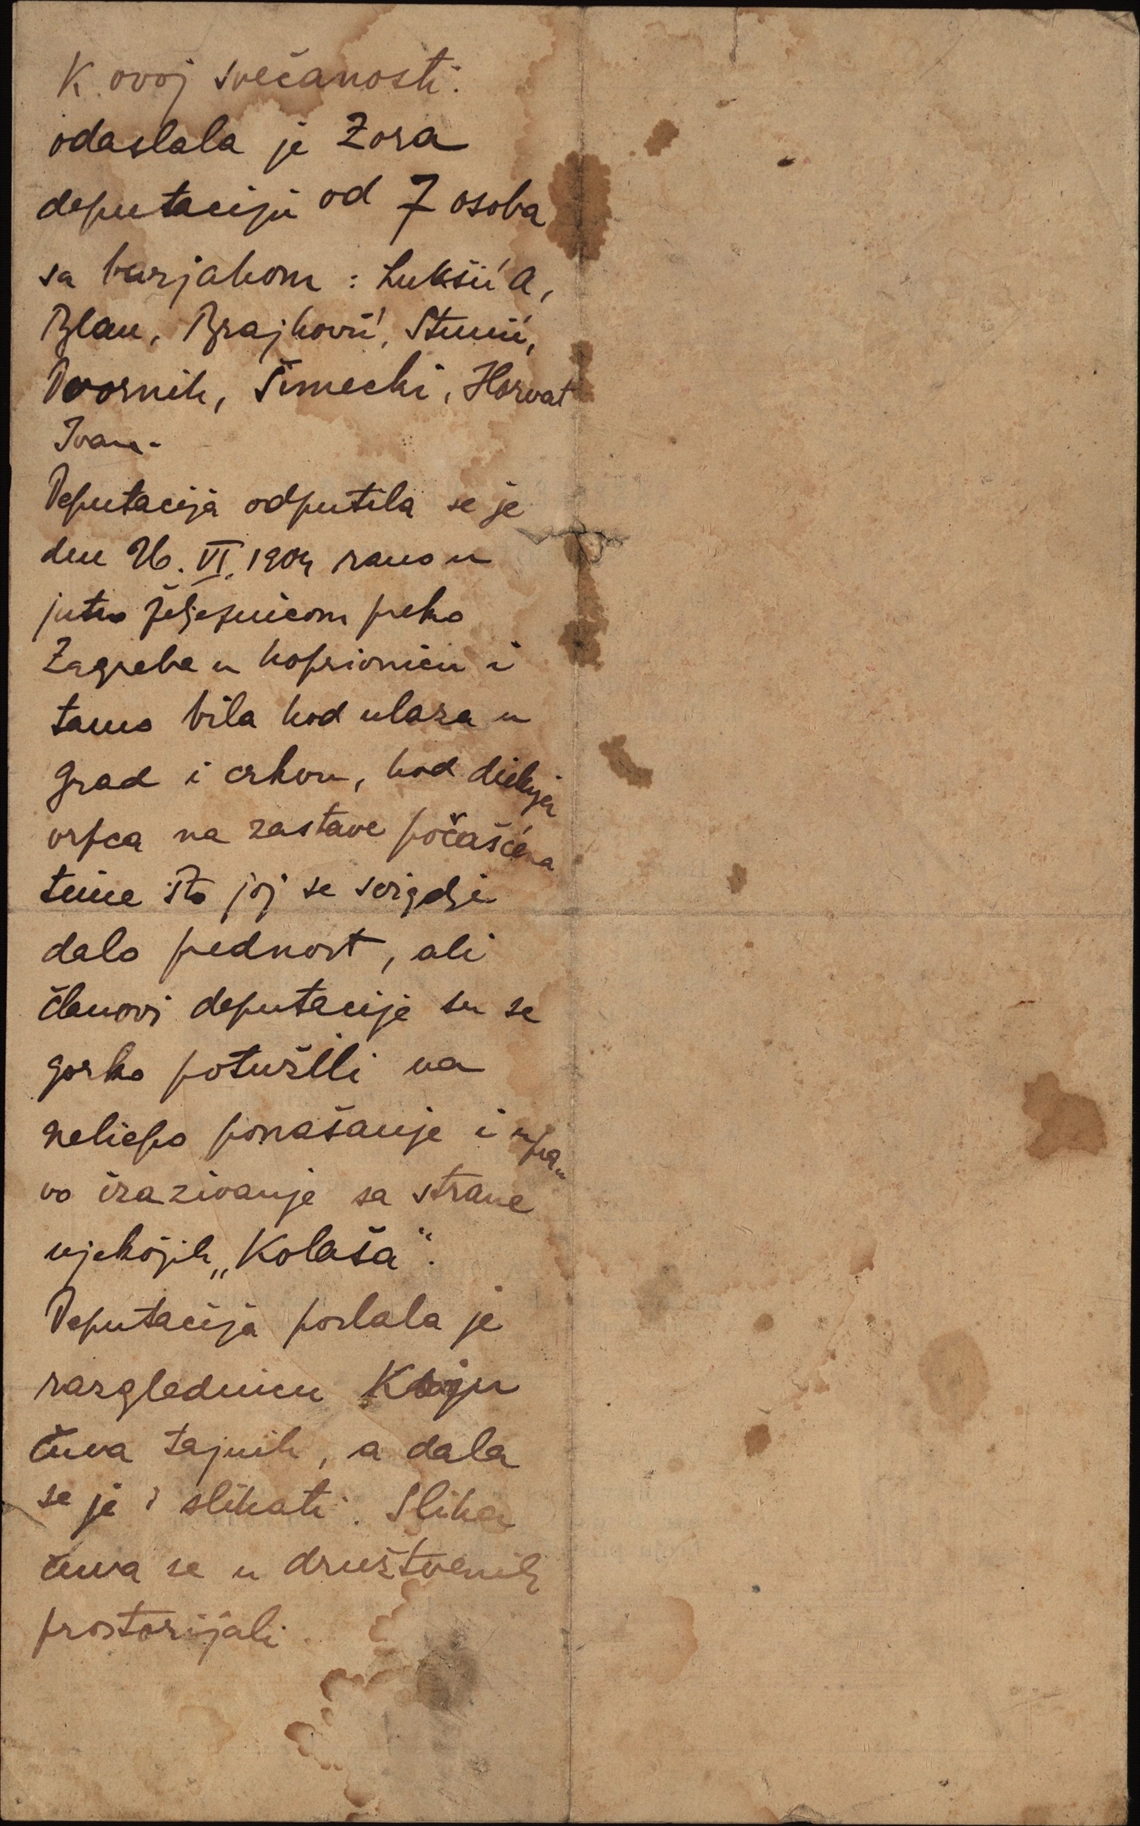 K ovoj svečanosti
odaslala je Zora
deputaciju od 7 osoba
sa barjakom : Lukšić A,
Blau, Brajković,
Dvornik, Šimecki, Horvat
Ivan.
Deputacija odputila se je
dne 26. VI. 1904 rano u
jutro željeznicom preko
Zagreba u Koprivnicu i
tamo bila kod ulaza u
grad i crkvu, kod
vrpca na zastave počašćena
time što joj se svigdje
dalo prednost, ali
članovi deputacije su se
gorko potužili na
neliepo ponašanje i upra„
vo izazivanje sa strane
njekojih „Kolaša“.
Deputacija poslala je
razglednicu Koju
čuva tajnik, a dala
se je i slikati. Slika
čuva se u društvenih
prostorijah